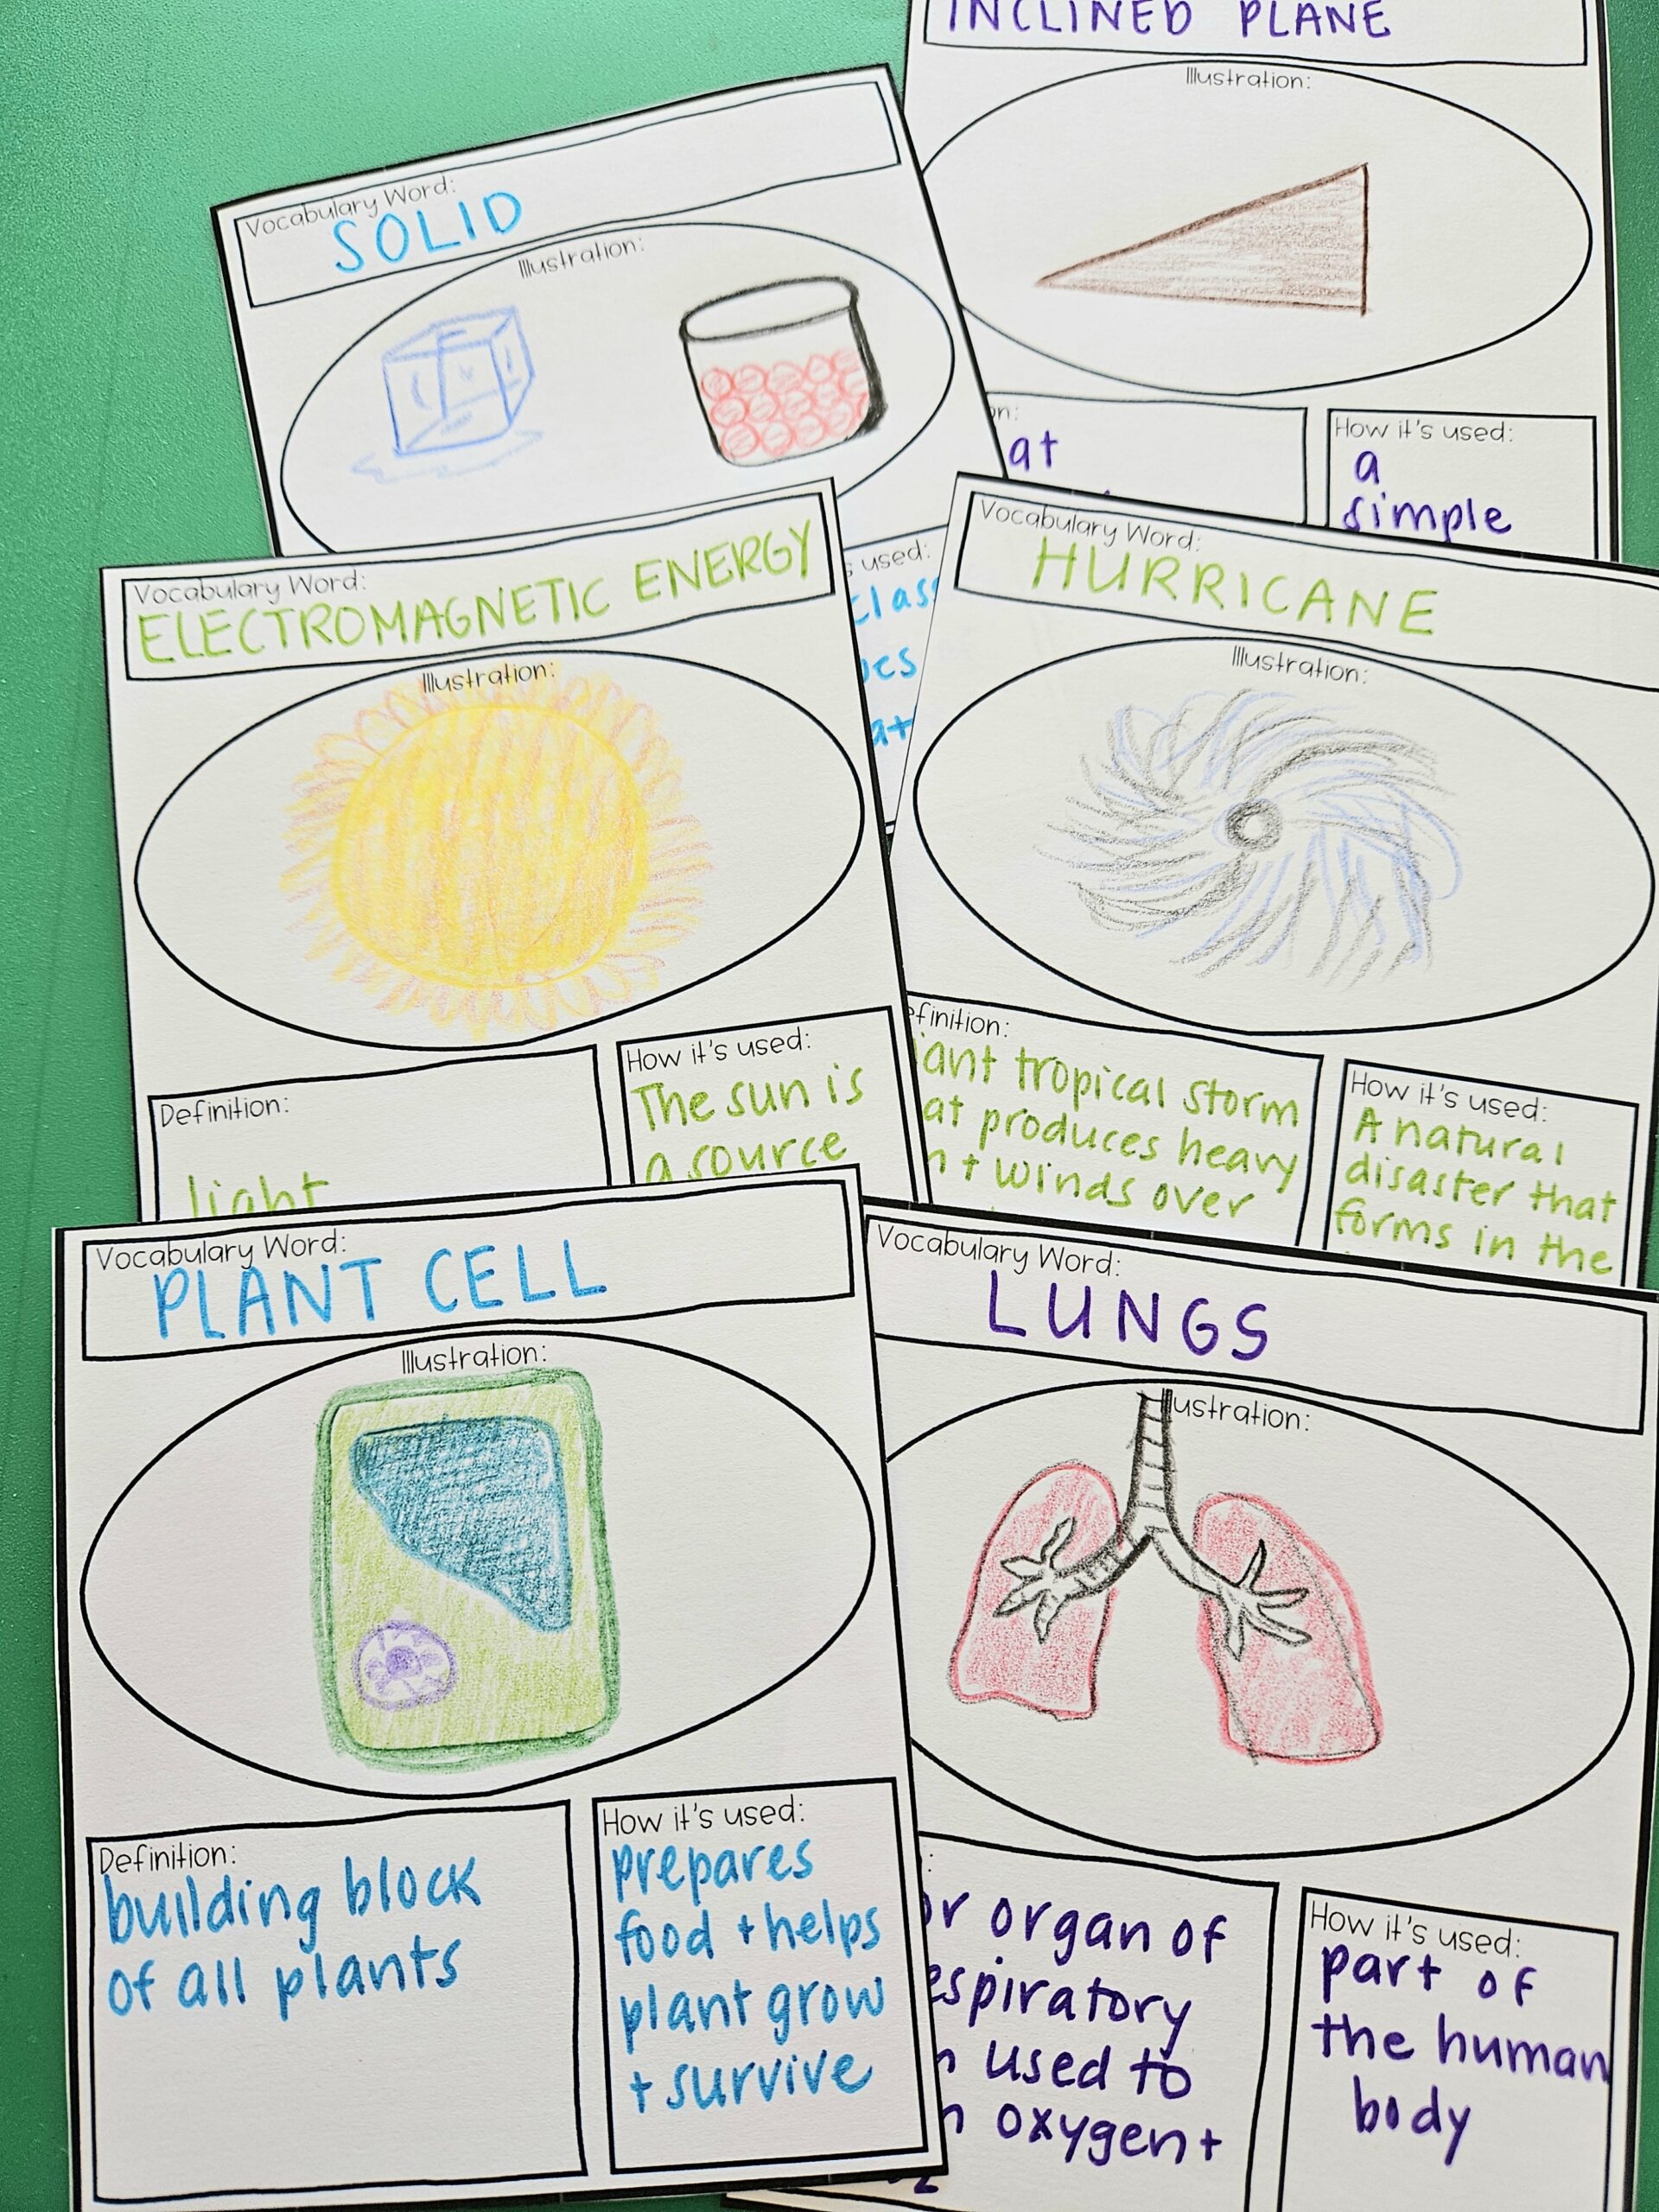 INCLINED PLANE
Illustration:
at
How it's used:
a
simple
Vocabulary Word:
SOLID
Illustration:
used:
Vocabulary Word:
ELECTROMAGNETIC ENERGY
Illustration:
Definition:
light
How it's used:
The sun is
a source
Vocabulary Word:
HURRICANE
Illustration:
tropical storm
produces heavy
+ winds over
How it's used:
A natural
disaster that
forms in the
Vocabulary Word:
PLANT CELL
Illustration:
Definition:
building block
of all plants
How it's used:
prepares
food + helps
plant grow
+ survive
Vocabulary Word:
LUNGS
Illustration:
organ of
used to
oxygen +
How it's used:
part of
the human
body